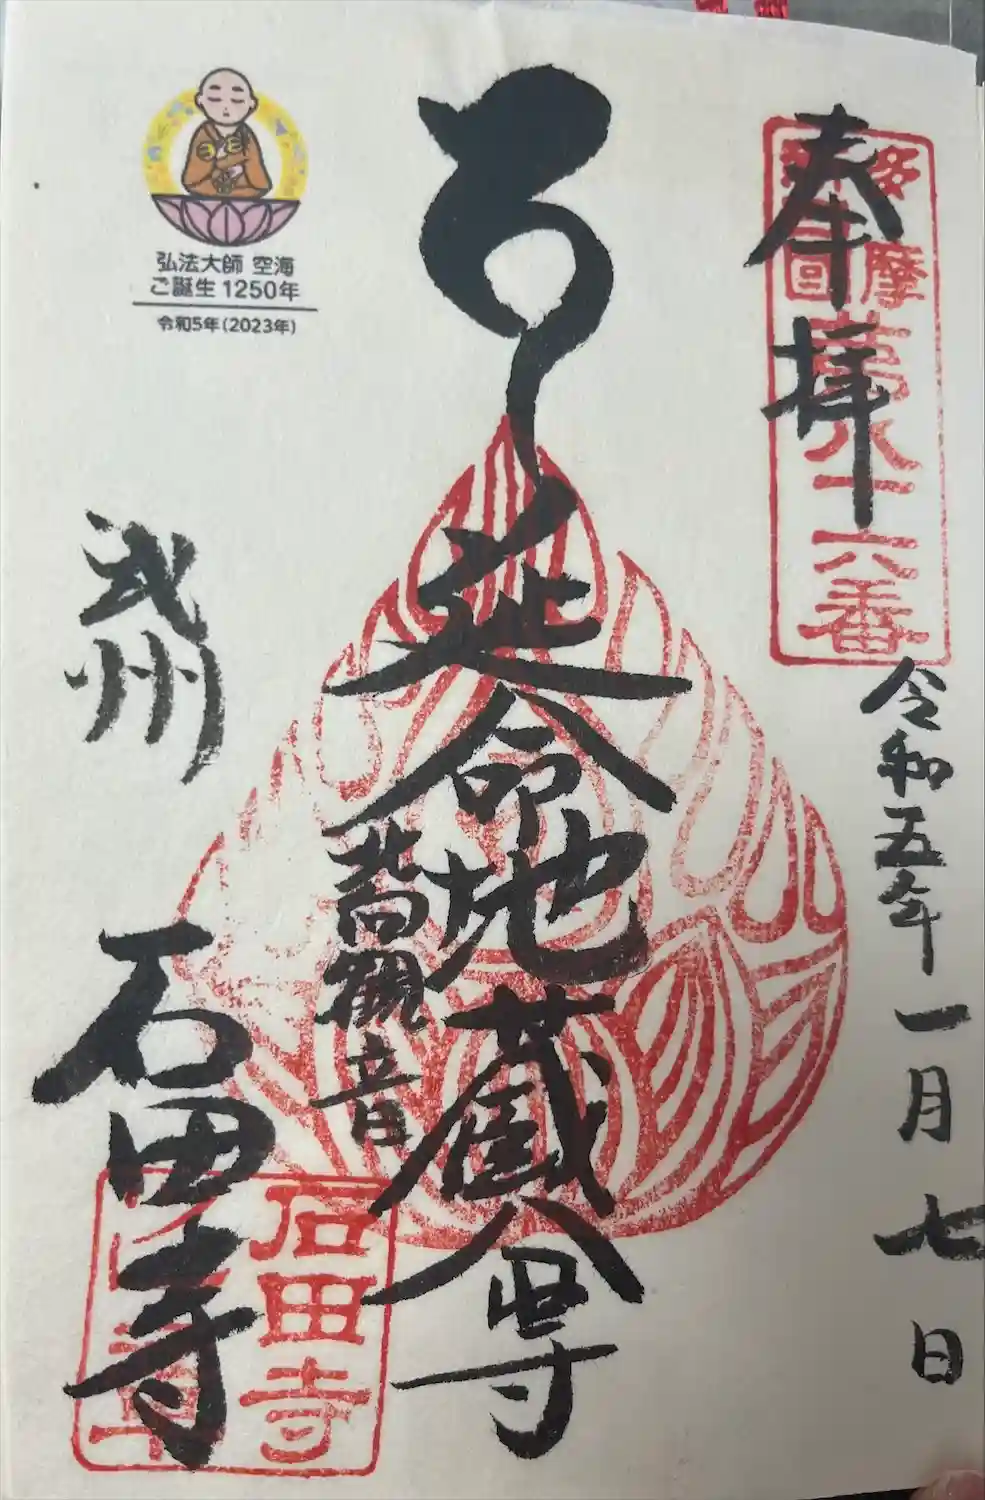 奉拝
多摩
四国
第八十六番
令和五年一月七日
延命地蔵尊
観音
武州
石田寺
石田寺
弘法大師 空海
ご誕生1250年
令和5年(2023年)